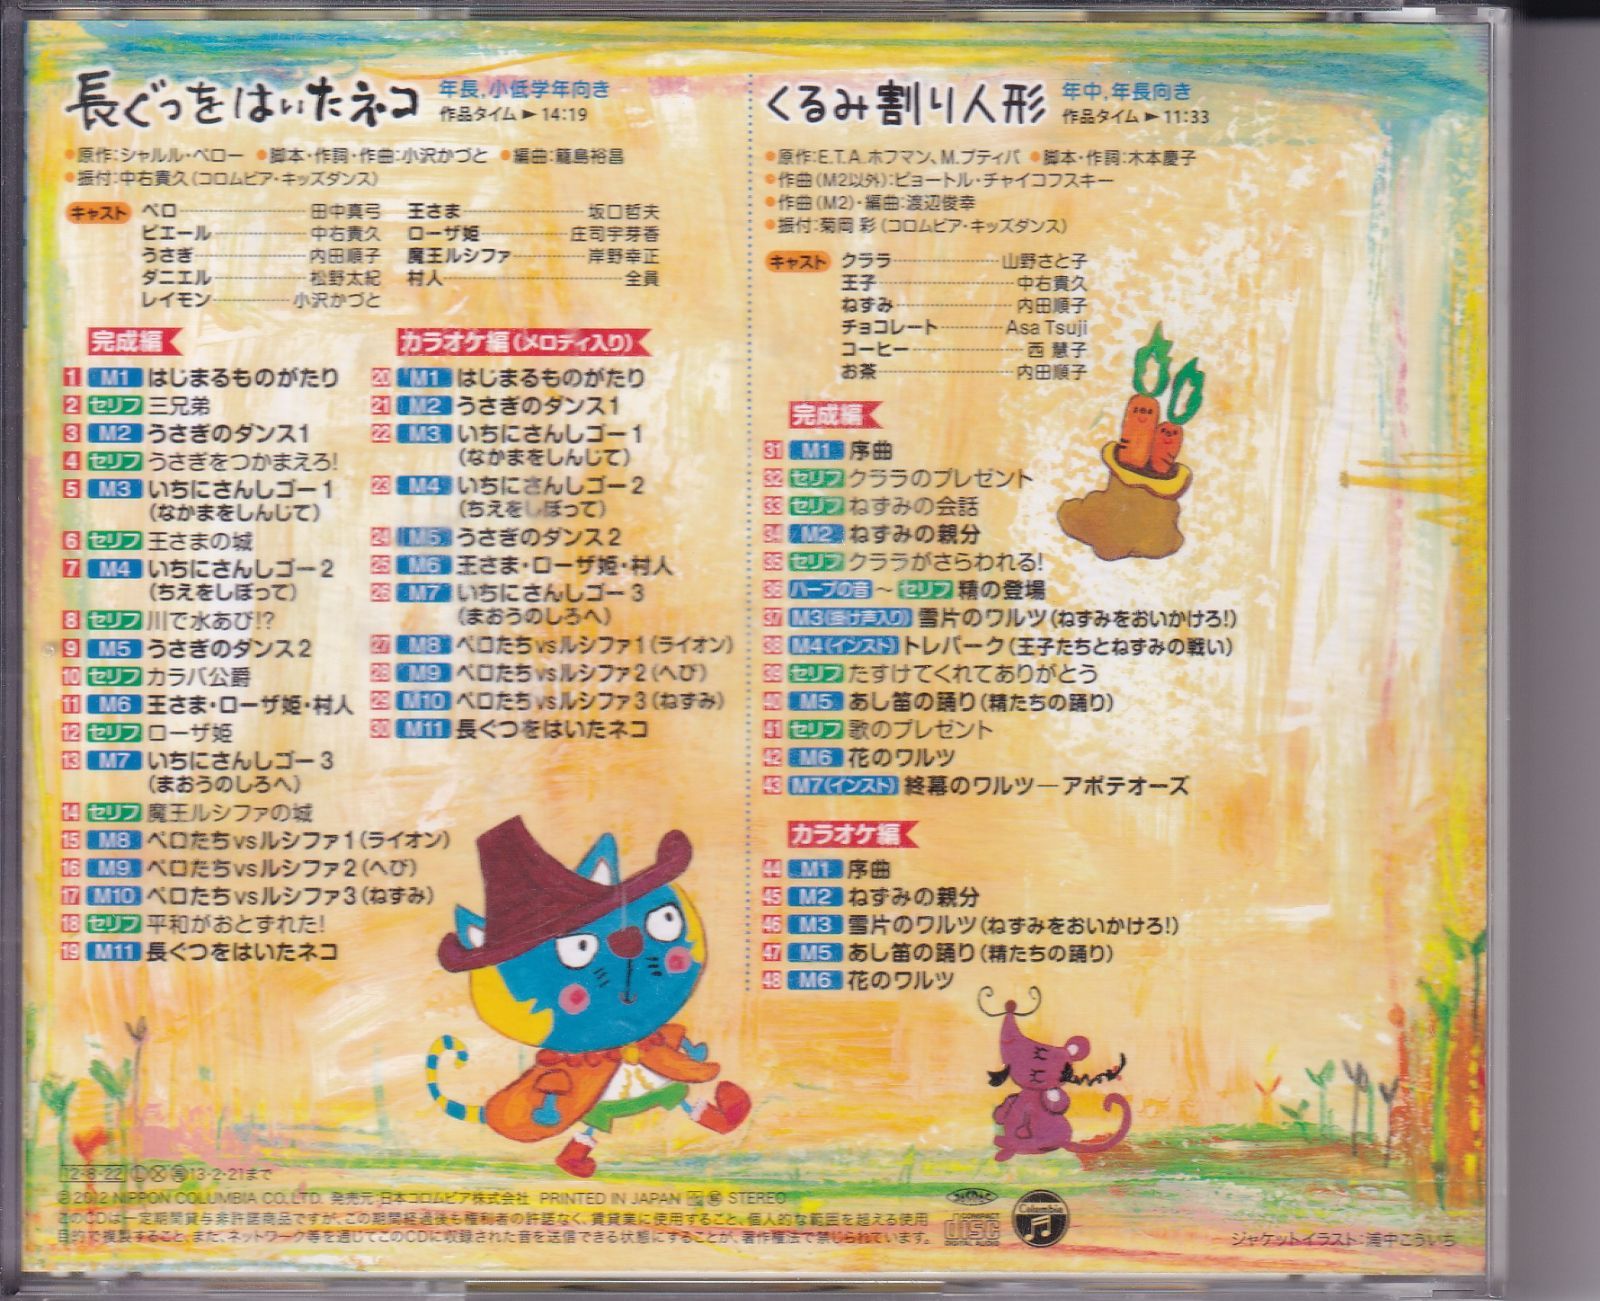 長ぐつをはいたネコ 年長,小低学年向き
作品タイム►14:19
●原作:シャルル・ペロー ●脚本・作詞・作曲:小沢かづと ●編曲:籠島裕昌
●振付:中右貴久(コロムビア・キッズダンス)
キャスト ペロ 田中真弓 王さま 坂口哲夫
ピエール 中右貴久 ローザ姫 庄司宇芽香
うさぎ 内田順子 魔王ルシファ 岸野幸正
ダニエル 松野太紀 村人 全員
レイモン 小沢かづと
完成編
1 M1 はじまるものがたり
2 セリフ 三兄弟
3 M2 うさぎのダンス1
4 セリフ うさぎをつかまえろ!
5 M3 いちにさんしゴー1
(なかまをしんじて)
6 セリフ 王さまの城
7 M4 いちにさんしゴー2
(ちえをしぼって)
8 セリフ 川で水あび!?
9 M5 うさぎのダンス2
10 セリフ カラバ公爵
11 M6 王さま・ローザ姫・村人
12 セリフ ローザ姫
13 M7 いちにさんしゴー3
(まおうのしろへ)
14 セリフ 魔王ルシファの城
15 M8 ペロたちvsルシファ1(ライオン)
16 M9 ペロたちvsルシファ2(へび)
17 M10 ペロたちvsルシファ3(ねずみ)
18 セリフ 平和がおとずれた!
19 M11 長ぐつをはいたネコ
カラオケ編(メロディ入り)
20 M1 はじまるものがたり
21 M2 うさぎのダンス1
22 M3 いちにさんしゴー1
(なかまをしんじて)
23 M4 いちにさんしゴー2
(ちえをしぼって)
24 M5 うさぎのダンス2
25 M6 王さま・ローザ姫・村人
26 M7 いちにさんしゴー3
(まおうのしろへ)
27 M8 ペロたちvsルシファ1(ライオン)
28 M9 ペロたちvsルシファ2(へび)
29 M10 ペロたちvsルシファ3(ねずみ)
30 M11 長ぐつをはいたネコ
くるみ割り人形 年中,年長向き
作品タイム►11:33
●原作:E.T.A.ホフマン、M.プティパ ●脚本・作詞:木本慶子
●作曲(M2以外):ピョートル・チャイコフスキー
●作曲(M2)・編曲:渡辺俊幸
●振付:菊岡 彩(コロムビア・キッズダンス)
キャスト クララ 山野さと子
王子 中右貴久
ねずみ 内田順子
チョコレート Asa Tsuji
コーヒー 西 慧子
お茶 内田順子
完成編
31 M1 序曲
32 セリフ クララのプレゼント
33 セリフ ねずみの会話
34 M2 ねずみの親分
35 セリフ クララがさらわれる!
36 ハープの音 ~ セリフ 精の登場
37 M3(掛け声入り) 雪片のワルツ(ねずみをおいかけろ!)
38 M4(インスト) トレパーク(王子たちとねずみの戦い)
39 セリフ たすけてくれてありがとう
40 M5 あし笛の踊り(精たちの踊り)
41 セリフ 歌のプレゼント
42 M6 花のワルツ
43 M7(インスト) 終幕のワルツ―アポテオーズ
カラオケ編
44 M1 序曲
45 M2 ねずみの親分
46 M3 雪片のワルツ(ねずみをおいかけろ!)
47 M5 あし笛の踊り(精たちの踊り)
48 M6 花のワルツ
12・8・22 Ⓛ Ⓧ 13・2・21まで
Ⓟ2012 NIPPON COLUMBIA CO.,LTD. 発売元:日本コロムビア株式会社 PRINTED IN JAPAN STEREO
このCDは一定期間貸与非許諾商品ですが、この期間経過後も権利者の許諾なく、賃貸業に使用すること、個人的な範囲を超える使用
目的で複製すること、また、ネットワーク等を通じてこのCDに収録された音を送信できる状態にすることが、著作権法で禁じられています。
COMPACT
disc
DIGITAL AUDIO
Columbia
ジャケットイラスト:浦中こういち